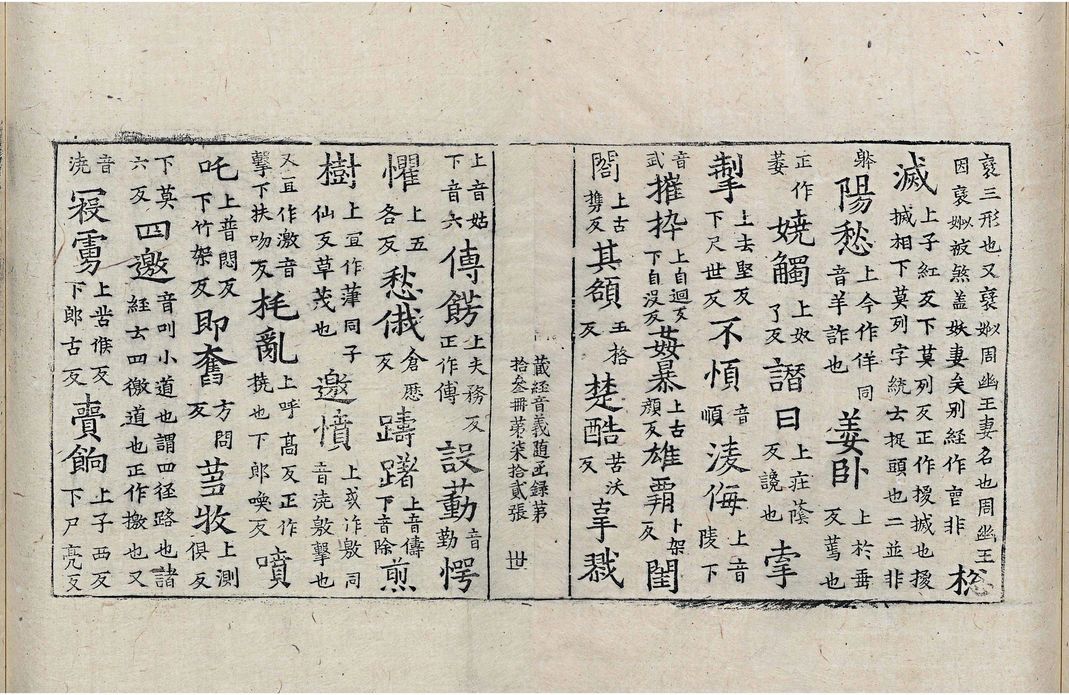 裦三形也又裦姒周幽王妻名也周幽王
因裦姒被煞盖妖妻矣别經作㑹非 㧐
滅上子紅反下莫列反正作揌搣也揌
搣相下莫列字統云捉頭也二並非
躰陽愁上今作佯同音羊詐也 萎卧上於垂反蔫也
正作萎 嬈觸上奴了反 譖曰上疘蔭反讒也 㧖
掣上去堅反下尺世反 不愩音順 淩侮上音陵下
音武 摧捽上自迴反下自没反 姦暴上古顔反 雄霸卜架反 閨
閤上古攜反 其頟五格反 楚酷苦沃反 㧖戮
藏經音義随函録第
拾叁冊苐柒拾貳張 丗
上音姑下音六 傅餝上夫務反正作傅 設懃音勤 愕
懼上五各反 愁俄倉厯反 躊躇上音儔下音除 煎
樹上冝作薄同子仙反草茂也 邀憤上或作敫同音澆敫擊也
又冝作激音擊下扶吻反 㧌亂上呼髙反正作撓也下郎喚反 噴
吒上普悶反下竹架反 即奮方問反 蒭牧上測俱反
下莫六反 四邀音叫小道也謂四径路也諸經云四徼道也正作撽也又
音澆 寇虜上苦候反下郎古反 賷餉上子西反下尸亮反